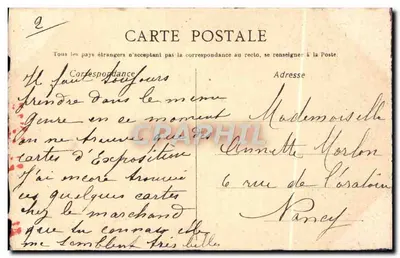 2
CARTE POSTALE
Tous les pays étrangers n'acceptant pas la correspondance au recto, se renseigner à la Poste
Correspondance
Adresse
Il faut toujours
prendre dans le même
genre en ce moment
on ne trouve que des
cartes d'Exposition
J'ai encore trouvé
quelques cartes
chez le marchand
que tu connais elles
me semblent très belles
Mademoiselle
Annette Morlon
6 rue de l'oratoire
Nancy
CPARAMA